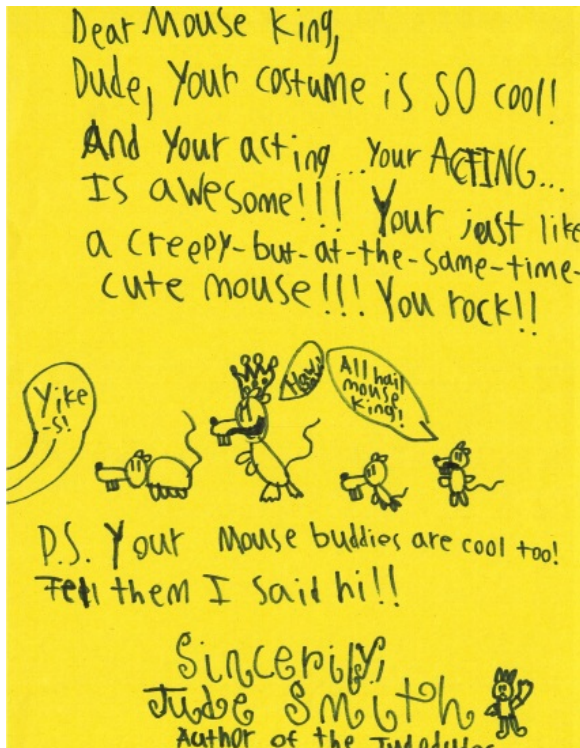 Dear Mouse King,
Dude, Your costume is SO cool!
And Your acting...Your ACTING...
Is awesome!!! Your just like
a creepy-but-at-the-same-time-
cute mouse!!! You rock!!
Yike
-s!
All hail
mouse
King!
P.S. Your Mouse buddies are cool too!
Tell them I said hi!!
Sincerily,
Jude Smith
Author of the